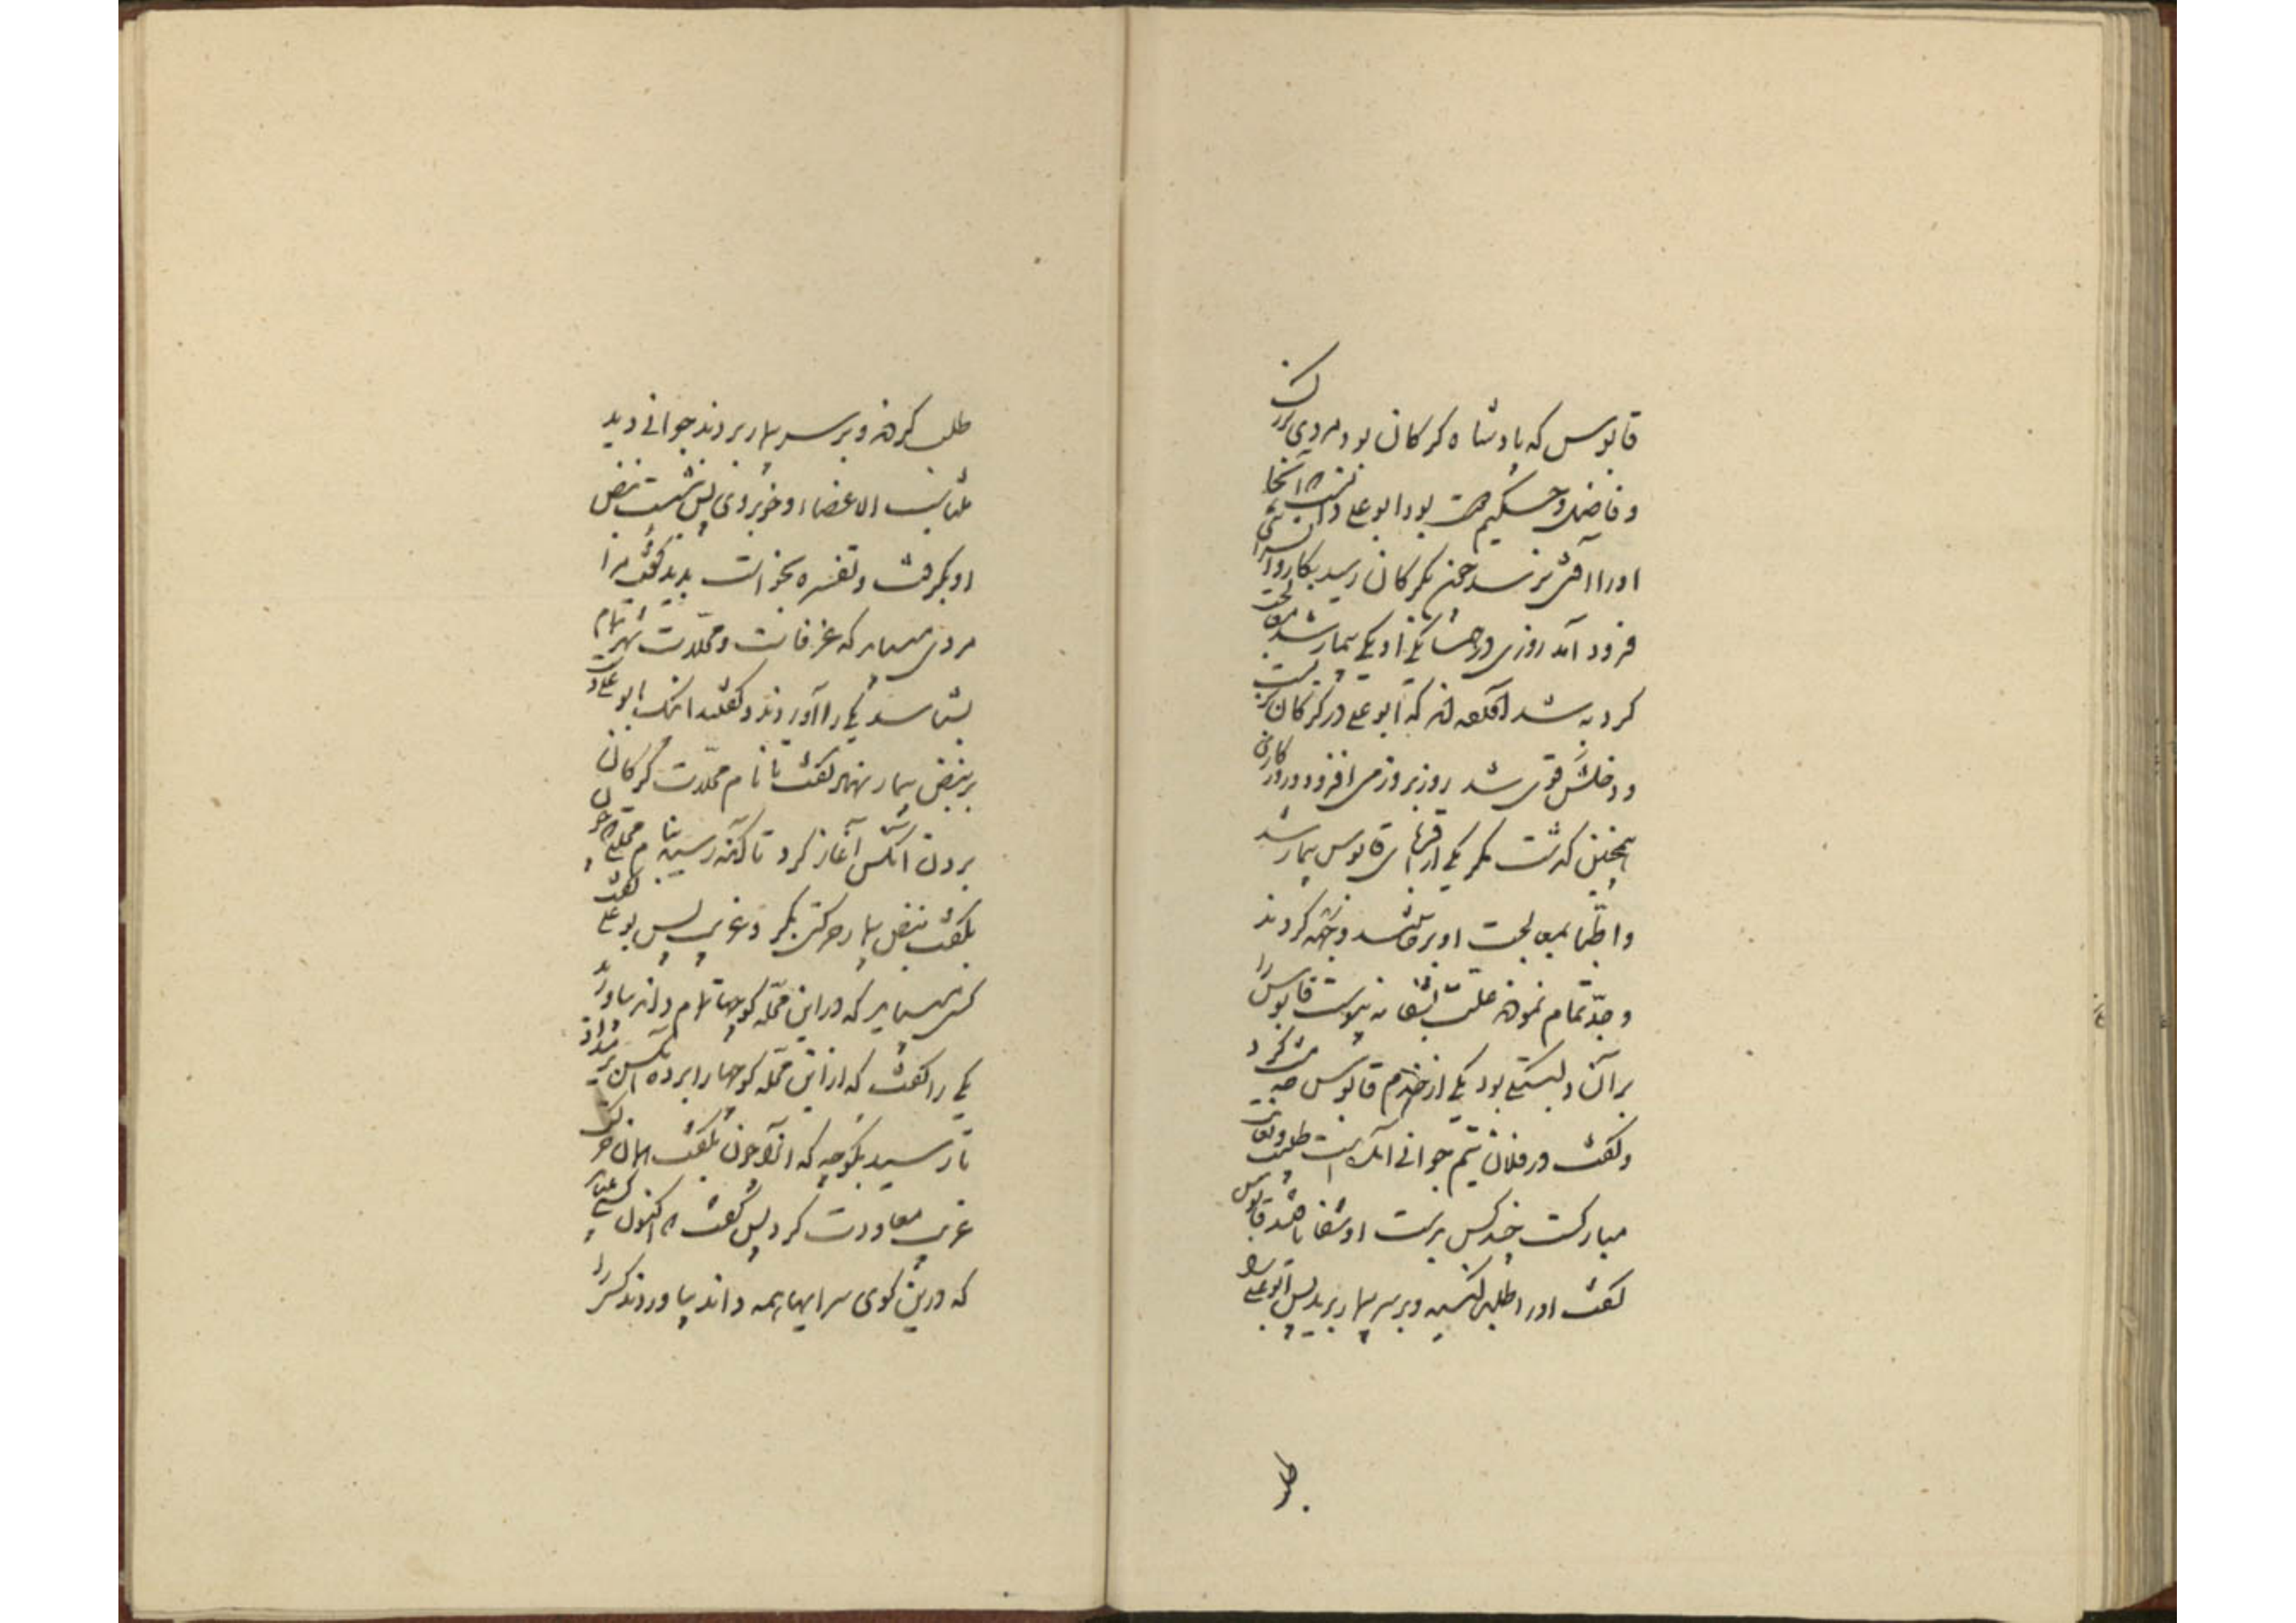 قابوس که پادشاه کرکان بود مردی بزرک
و فاضل و حکیم دوست بود ابو علی دانست که آنجا
اورا آفتی نرسد چون بکرکان رسید بکاروانسرای
فرود آمد روزی در همسایکی او یکی بیمار شد معالجت
کرد به شد
که ابو علی در کرکان
و دخلش قوی شد روز بروز می افزود و روزکاری
همچنین کذشت مکر یکی از اقربای قابوس بیمار شد
و اطبا بمعالجت او برخاستند و جهد کردند
و جدّ تمام نمودند علت بشفا نه پیوست قابوس را
بر آن دلبستکی بود یکی از خدم قابوس عرضه کرد
و کفت در فلان تیم جوانی آمده است طبیب و بغایت
مبارکدست چند کس بردست او شفا یافتند قابوس
کفت اورا طلب کنید و بر سر بیمار برید پس ابو علی را
طلب
طلب کردند و بر سر بیمار بردند جوانی دید
متناسب الاعضاء و خوبروی پس نشست نبض
او بکرفت و تفسره بخواست بدید کفت مرا
مردی میباید که غرفات و محلات شهر تمام
بشناسد یکی را آوردند و کفتند اینک ابو علی دست
بر نبض بیمار نهاد کفت تا نام محلات کرکان
بردن آنکس آغاز کرد تا آنکه رسید بنام محله که چون
بکفت نبض بیمار حرکتی کرد غریب پس بو علی کفت
کسی میباید که در این محله کوچها تمام داند بیاورند
یکی را کفت که از این محله کوچها را بر ده آنکس
تا رسید بکوچه که آنرا چون بکفت همان حرکت
غریب معاودت کرد پس کفت که اکنون کسی میباید
که درین کوی سرایها همه داند بیاوردند کسی را